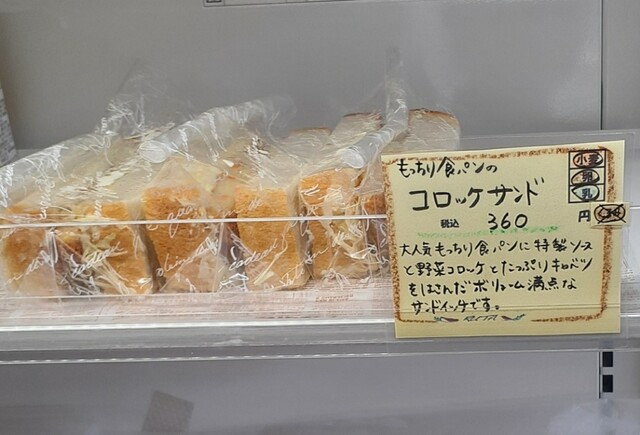 もっちり食パンの
コロッケサンド
税込 360 円
小麦
卵
乳
大人気もっちり食パンに特製ソース
と野菜コロッケとたっぷりキャベツ
をはさんだボリューム満点な
サンドイッチです。